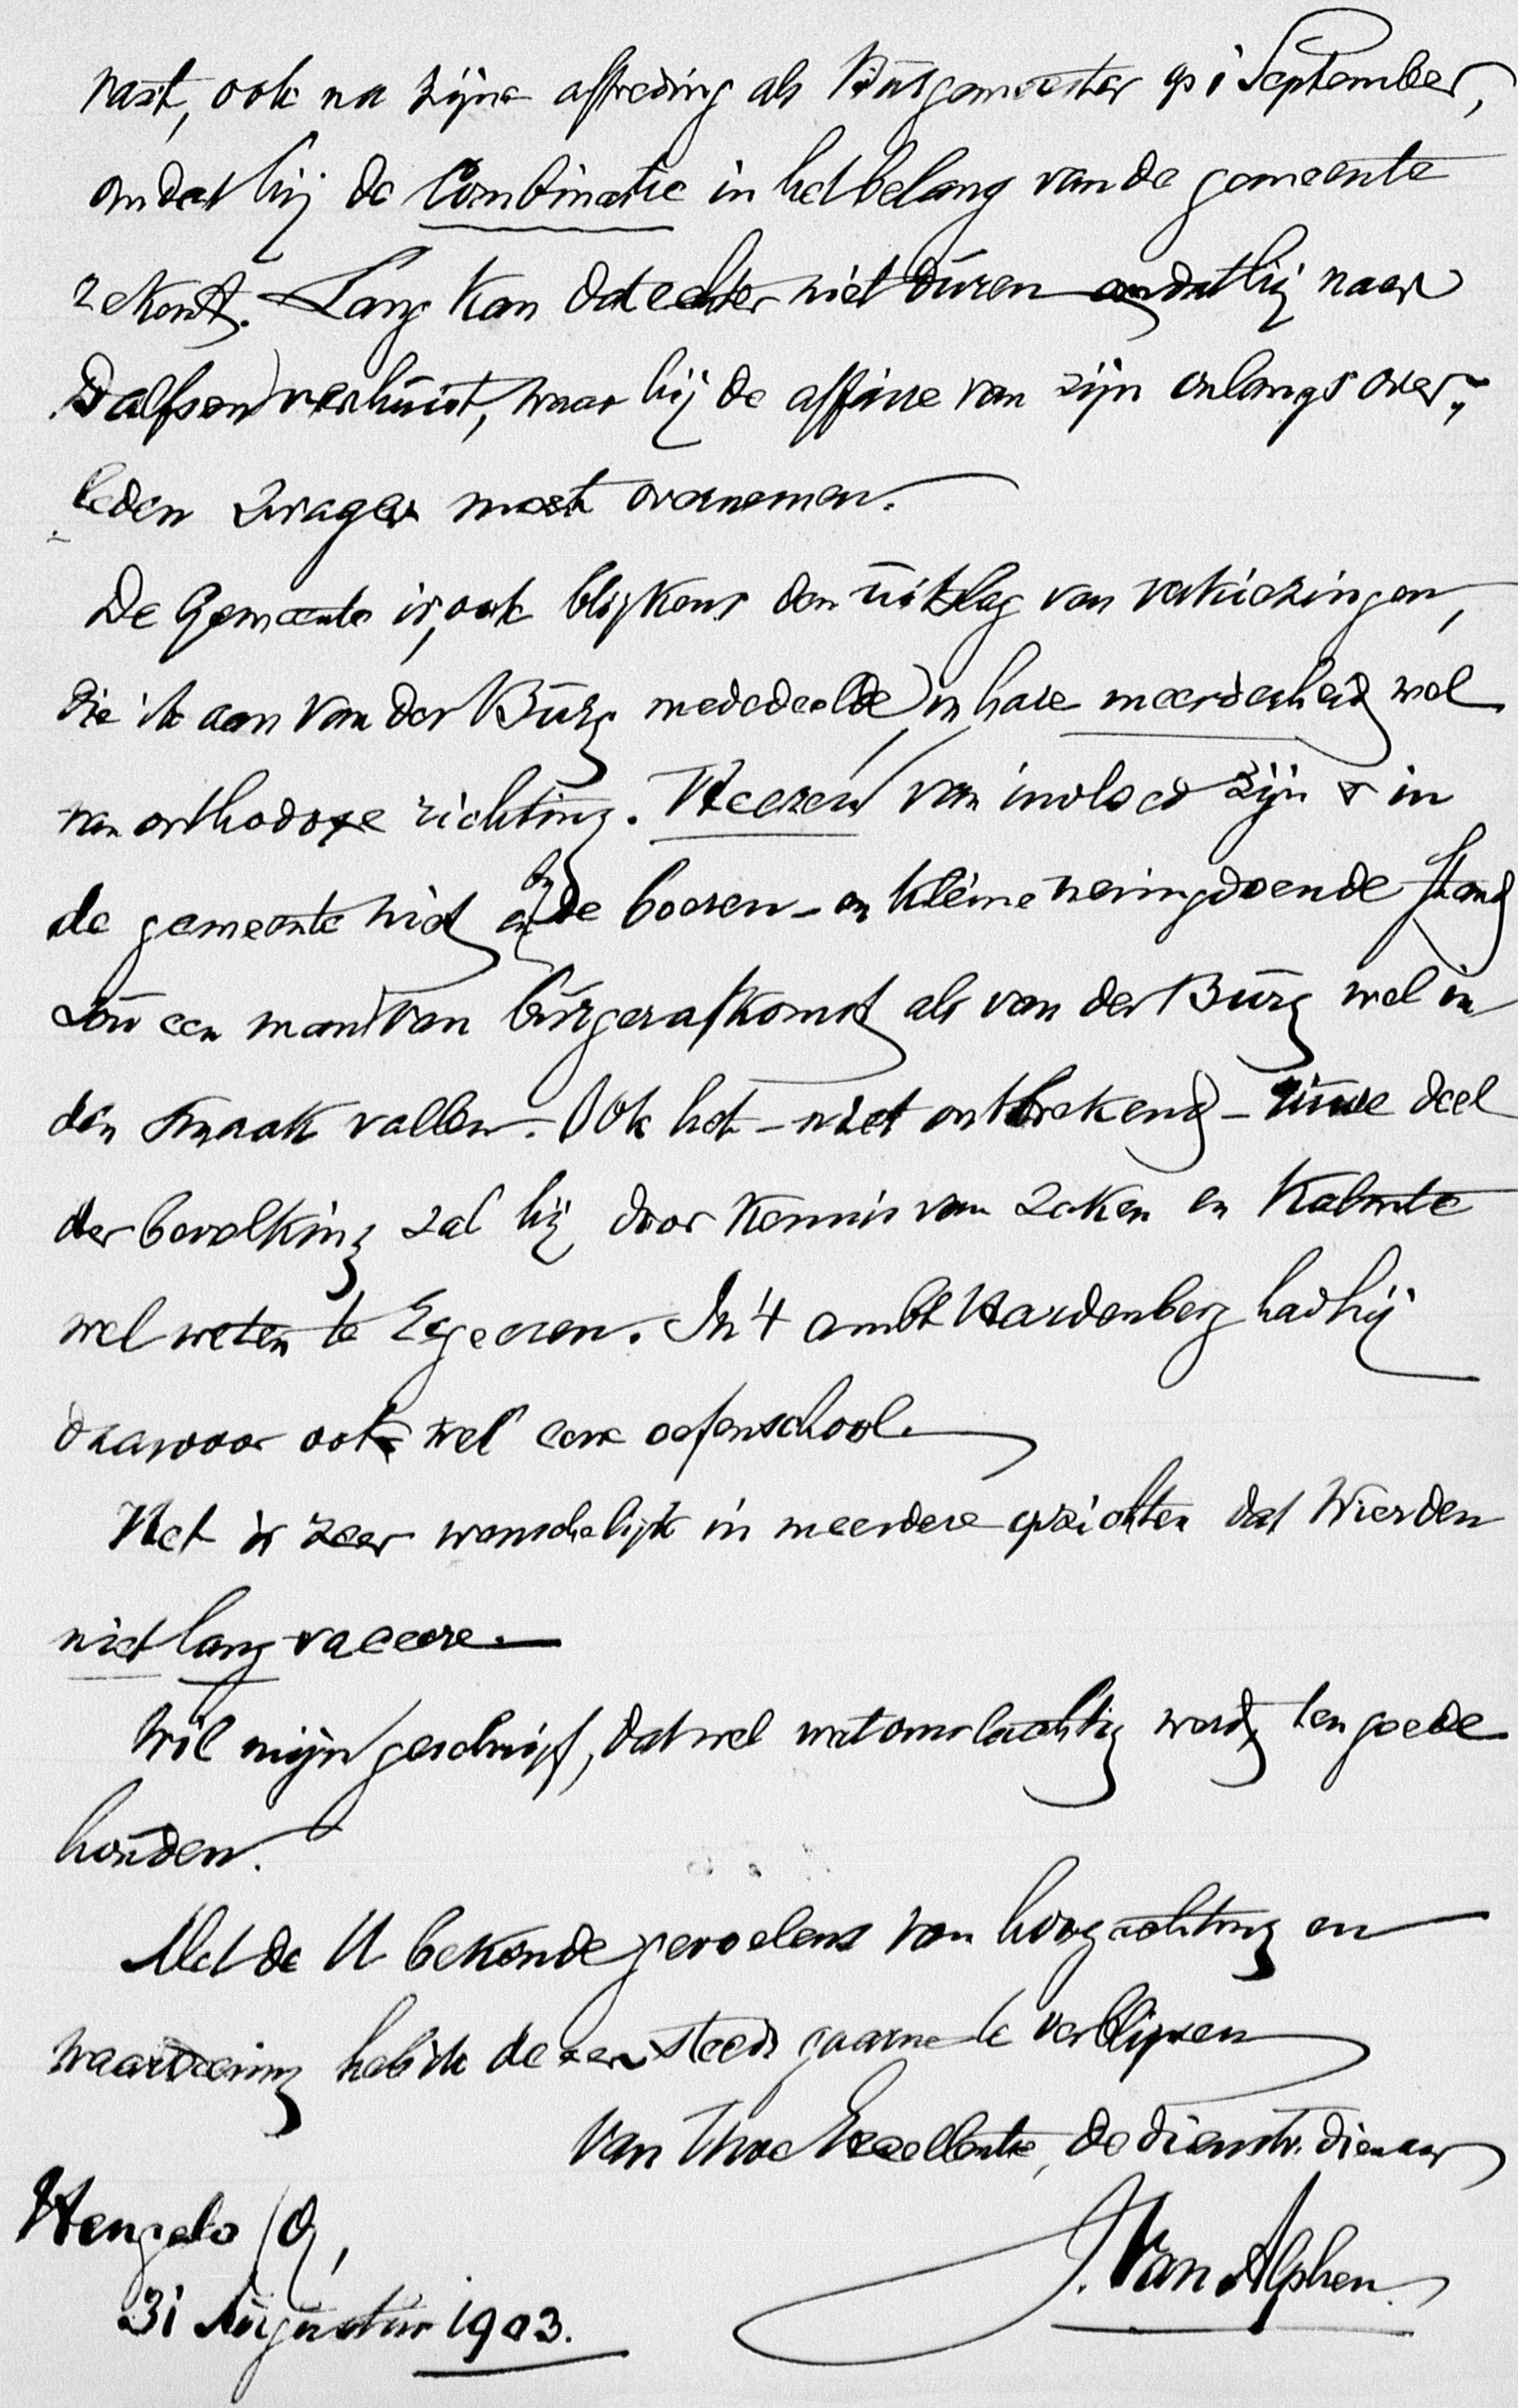 vast, ook na zijne aftreding als Burgemeester op 1 September,
omdat hij de Combinatie in het belang van de gemeente
. Lang kan dat echter niet duren omdat hij naar
Dalfsen verhuist, waar hij de affaire van zijn onlangs over„
„leden zwager moet overnemen.
De Gemeente is, ook blijkens den uitslag van verkiezingen,
die ik aan Van der Burg mededeelde, in hare meerderheid wel
van orthodoxe richting. Heeren van invloed zijn er in
de gemeente niet en bij de boeren- en kleine neringdoende stand
zou een man van burgerafkomst als van der Burg wel in
den smaak vallen. Ook het - niet ontbrekend - ruwe deel
der bevolking zal hij door kennis van zaken en kalmte
wel weten te regeeren. In 't ambt Hardenberg had hij
daarvoor ook wel eene oefenschool.
Het is zeer wenschelijk in meerdere opzichten dat Wierden
niet lang vaceere.
Wil mijn geschrijf, dat wel wat omslachtig werd, ten goede
houden.
Met de U bekende gevoelens van hoogachting en
waardeering heb ik de eer steeds gaarne te verblijven
Van Uwe Excellentie, de dienstw. dienaar
Hengelo (O),
J. Van Alphen.
31 Augustus 1903.